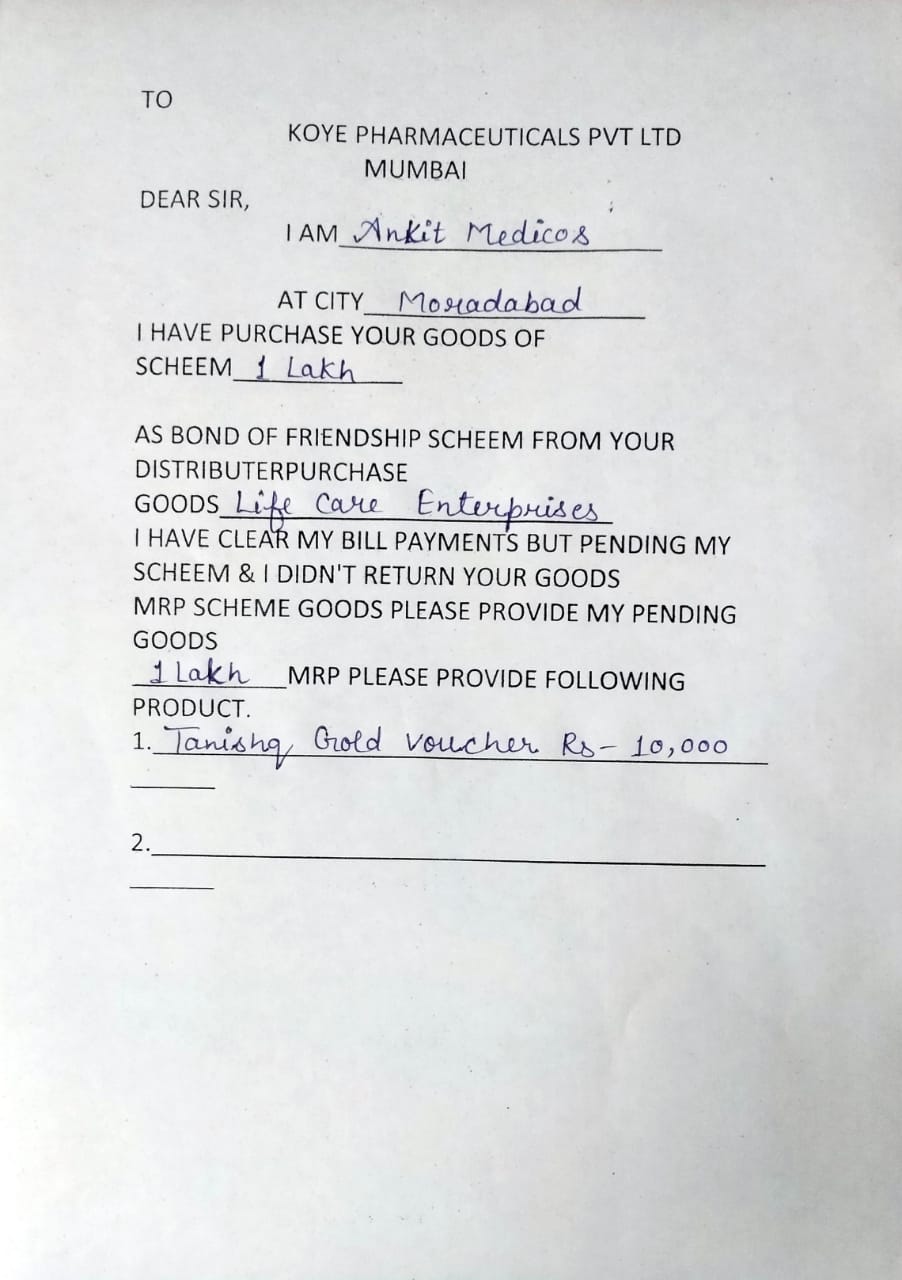 TO
KOYE PHARMACEUTICALS PVT LTD
MUMBAI
DEAR SIR,
I AM Ankit Medicos
AT CITY Moradabad
I HAVE PURCHASE YOUR GOODS OF
SCHEEM 1 Lakh
AS BOND OF FRIENDSHIP SCHEEM FROM YOUR
DISTRIBUTERPURCHASE
GOODS Life Care Enterprises
I HAVE CLEAR MY BILL PAYMENTS BUT PENDING MY
SCHEEM & I DIDN'T RETURN YOUR GOODS
MRP SCHEME GOODS PLEASE PROVIDE MY PENDING
GOODS
1 Lakh MRP PLEASE PROVIDE FOLLOWING
PRODUCT.
1. Tanishq Gold Voucher Rs- 10,000
2.